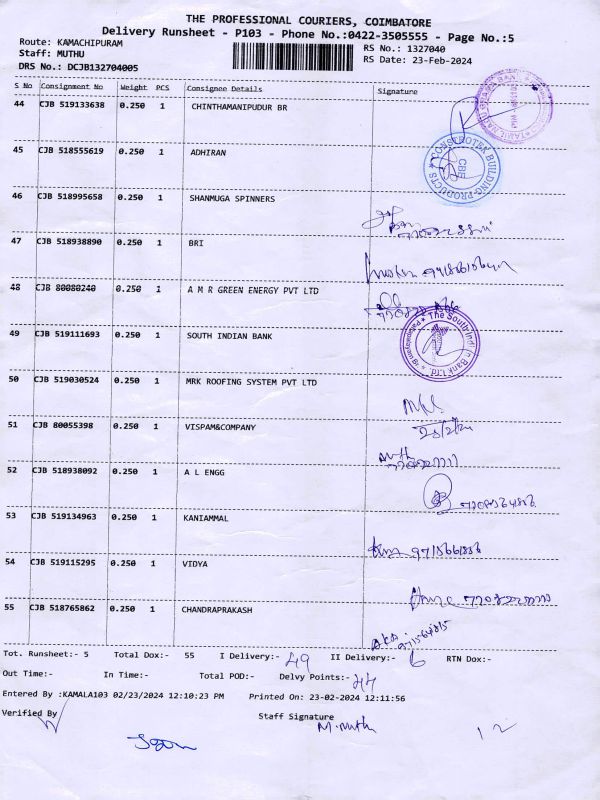 THE PROFESSIONAL COURIERS, COIMBATORE
Delivery Runsheet - P103 - Phone No.:0422-3505555 - Page No.:5
Route: KAMACHIPURAM RS No.: 1327040
Staff: MUTHU RS Date: 23-Feb-2024
DRS No.: DCJB132704005
S No Consignment No Weight PCS Consignee Details Signature
44 CJB 519133638 0.250 1 CHINTHAMANIPUDUR BR
45 CJB 518555619 0.250 1 ADHIRAN
BUILDING PRODUCTS
CBE
46 CJB 518995658 0.250 1 SHANMUGA SPINNERS
47 CJB 518938890 0.250 1 BRI
48 CJB 80080240 0.250 1 A M R GREEN ENERGY PVT LTD
49 CJB 519111693 0.250 1 SOUTH INDIAN BANK
The South Indian Bank Ltd.
50 CJB 519030524 0.250 1 MRK ROOFING SYSTEM PVT LTD
51 CJB 80055398 0.250 1 VISPAM&COMPANY
52 CJB 518938092 0.250 1 A L ENGG
53 CJB 519134963 0.250 1 KANIAMMAL
54 CJB 519115295 0.250 1 VIDYA
55 CJB 518765862 0.250 1 CHANDRAPRAKASH
Tot. Runsheet:- 5 Total Dox:- 55 I Delivery:- 49 II Delivery:- 6 RTN Dox:-
Out Time:- In Time:- Total POD:- Delvy Points:- 44
Entered By :KAMALA103 02/23/2024 12:10:23 PM Printed On: 23-02-2024 12:11:56
Verified By Staff Signature
M. Muthu
12